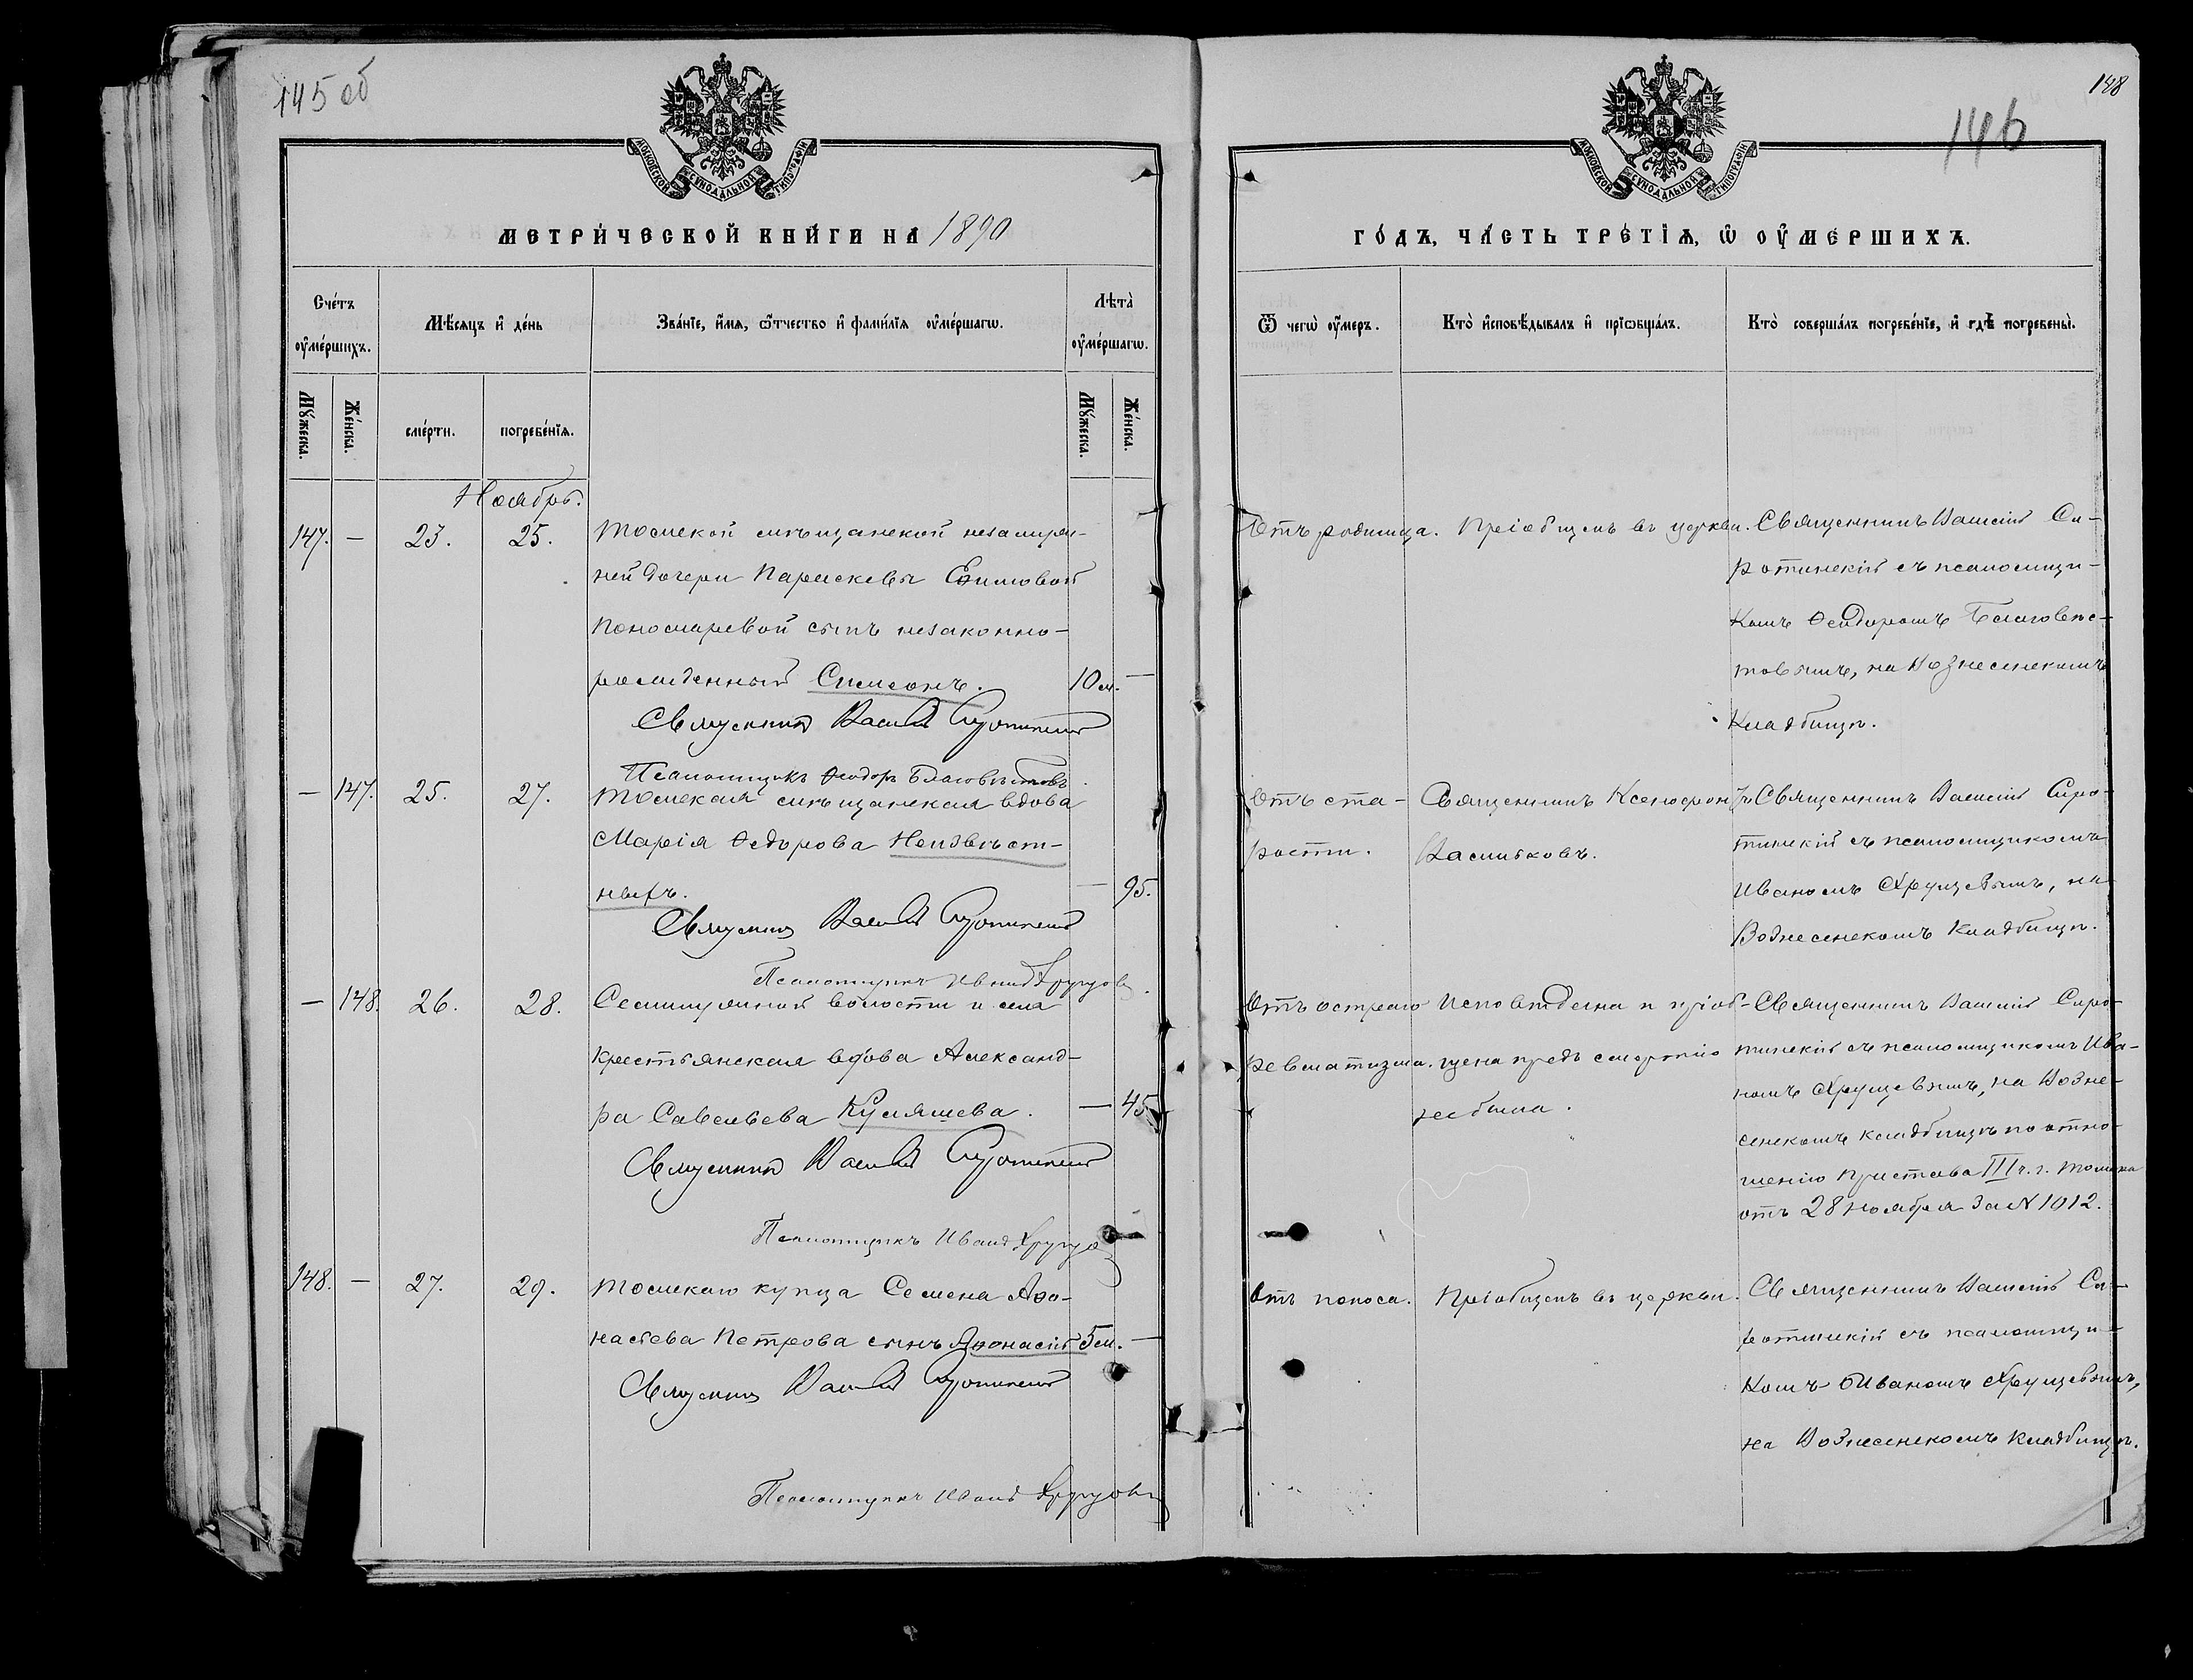 145 об
МОСКОВСКОЙ СУНОДАЛЬНОЙ ТИПОГРАФІИ
МЕТРИ́ЧЕСКОЙ КНИ́ГИ НА 1890
Сче́тъ оу҆ме́ршихъ.
Мѣ́сяцъ и҆ де́нь
Зва́нїе, и҆́мѧ, ѿтчество и҆ фами́лїѧ оу҆ме́ршагѡ.
Лѣта̀ оу҆ме́ршагѡ.
Мꙋ́жеска.
Же́нска.
сме́рти.
погребе́нїѧ.
Мꙋ́жеска.
Же́нска.
Ноябрь.
147. — 23. 25. Томской мѣщанской незамуж-
ней дочери Параскевы Ефимовой
Пономаревой сынъ незаконно-
рожденный Симеонъ. 10 м. —
Священникъ Василій Сиротинскій
Псаломщикъ Ѳеодоръ Благовѣстовъ
— 147. 25. 27. Томская мѣщанская вдова
Марія Ѳедорова Неизвѣст-
ныхъ. — 95.
Священникъ Василій Сиротинскій
Псаломщикъ Иванъ Хрущовъ
— 148. 26. 28. Семилужной волости и села
крестьянская вдова Александ-
ра Савельева Куляшева. — 45
Священникъ Василій Сиротинскій
Псаломщикъ Иванъ Хрущовъ
148. — 27. 29. Томскаго купца Семена Аѳо-
насьева Петрова сынъ Аѳонасій 5 м. —
Священникъ Василій Сиротинскій
Псаломщикъ Иванъ Хрущовъ
148
146
МОСКОВСКОЙ СУНОДАЛЬНОЙ ТИПОГРАФІИ
ГО́ДЪ, ЧА́СТЬ ТРЕ́ТЇѦ, Ѡ҆ ОУ҆МЕ́РШИХЪ.
Ѿ чегѡ̀ оу҆́меръ.
Кто̀ и҆сповѣ́дывалъ и҆ прїѡбща́лъ.
Кто̀ соверша́лъ погребе́нїе, и҆ гдѣ̀ погребены̀.
Отъ родимца. Пріобщенъ въ церкви. Священникъ Василій Си-
ротинскій съ псаломщи-
комъ Ѳеодоромъ Благовѣс-
товымъ, на Вознесенскомъ
Кладбищѣ.
Отъ ста- Священникъ Ксенофонтъ Священникъ Василій Сиро-
рости. Васильковъ. тинскій съ псаломщикомъ
Иваномъ Хрущевымъ, на
Вознесенскомъ Кладбищѣ.
Отъ остраго Исповѣдена и пріоб- Священникъ Василій Сиро-
ревматизма. щена предъ смертію тинскій съ псаломщикомъ Ива-
не была. номъ Хрущевымъ, на Возне-
сенскомъ кладбищѣ по отно-
шенію Пристава III ч. г. Томска
отъ 28 ноября за № 1012.
Отъ поноса. Пріобщенъ въ церкви. Священникъ Василій Си-
ротинскій съ псаломщи-
комъ Иваномъ Хрущевымъ,
на Вознесенскомъ Кладбищѣ.